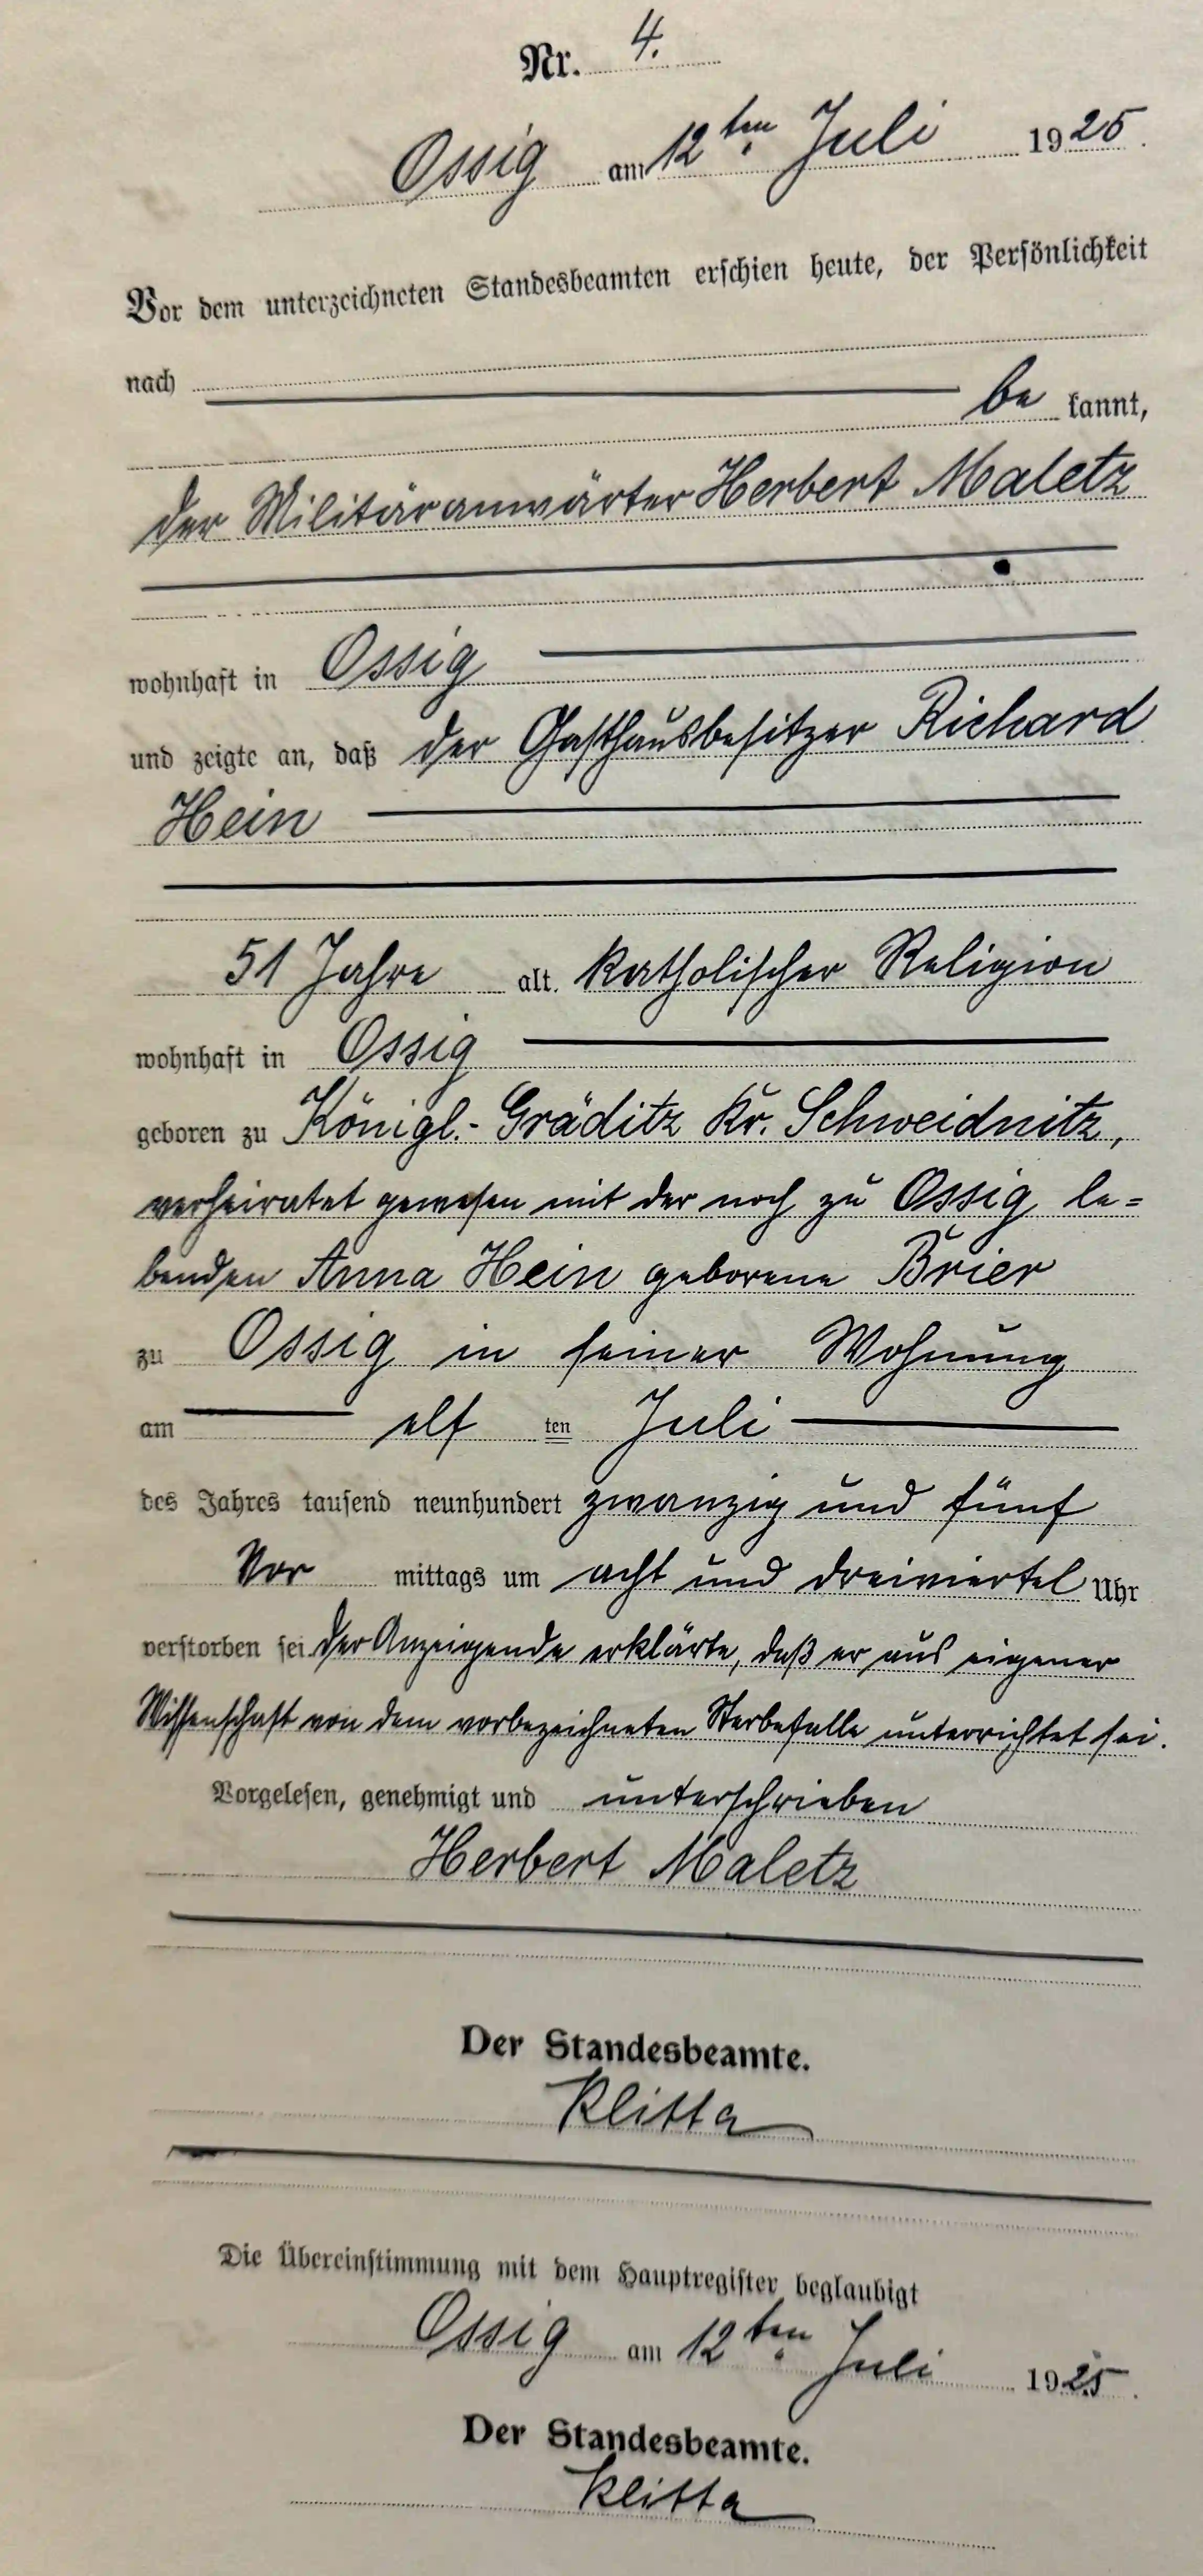 Nr. 4.
Ossig am 12ten Juli 1925.
Vor dem unterzeichneten Standesbeamten erschien heute, der Persönlichkeit
nach
be kannt,
der Militäranwärter Herbert Maletz
wohnhaft in Ossig
und zeigte an, daß der Gasthausbesitzer Richard
Hein
51 Jahre alt. katholischer Religion
wohnhaft in Ossig
geboren zu Königl.-Gräditz Kr. Schweidnitz,
verheiratet gewesen mit der noch zu Ossig le=
benden Anna Hein geborene Brier
zu Ossig in seiner Wohnung
am elf ten Juli
des Jahres tausend neunhundert zwanzig und fünf
Vor mittags um acht und dreiviertel Uhr
verstorben sei. Der Anzeigende erklärte, daß er aus eigener
Wissenschaft von dem vorbezeichneten Sterbefalle unterrichtet sei.
Vorgelesen, genehmigt und unterschrieben
Herbert Maletz
Der Standesbeamte.
Klitta
Die Übereinstimmung mit dem Hauptregister beglaubigt
Ossig am 12ten Juli 1925.
Der Standesbeamte.
Klitta